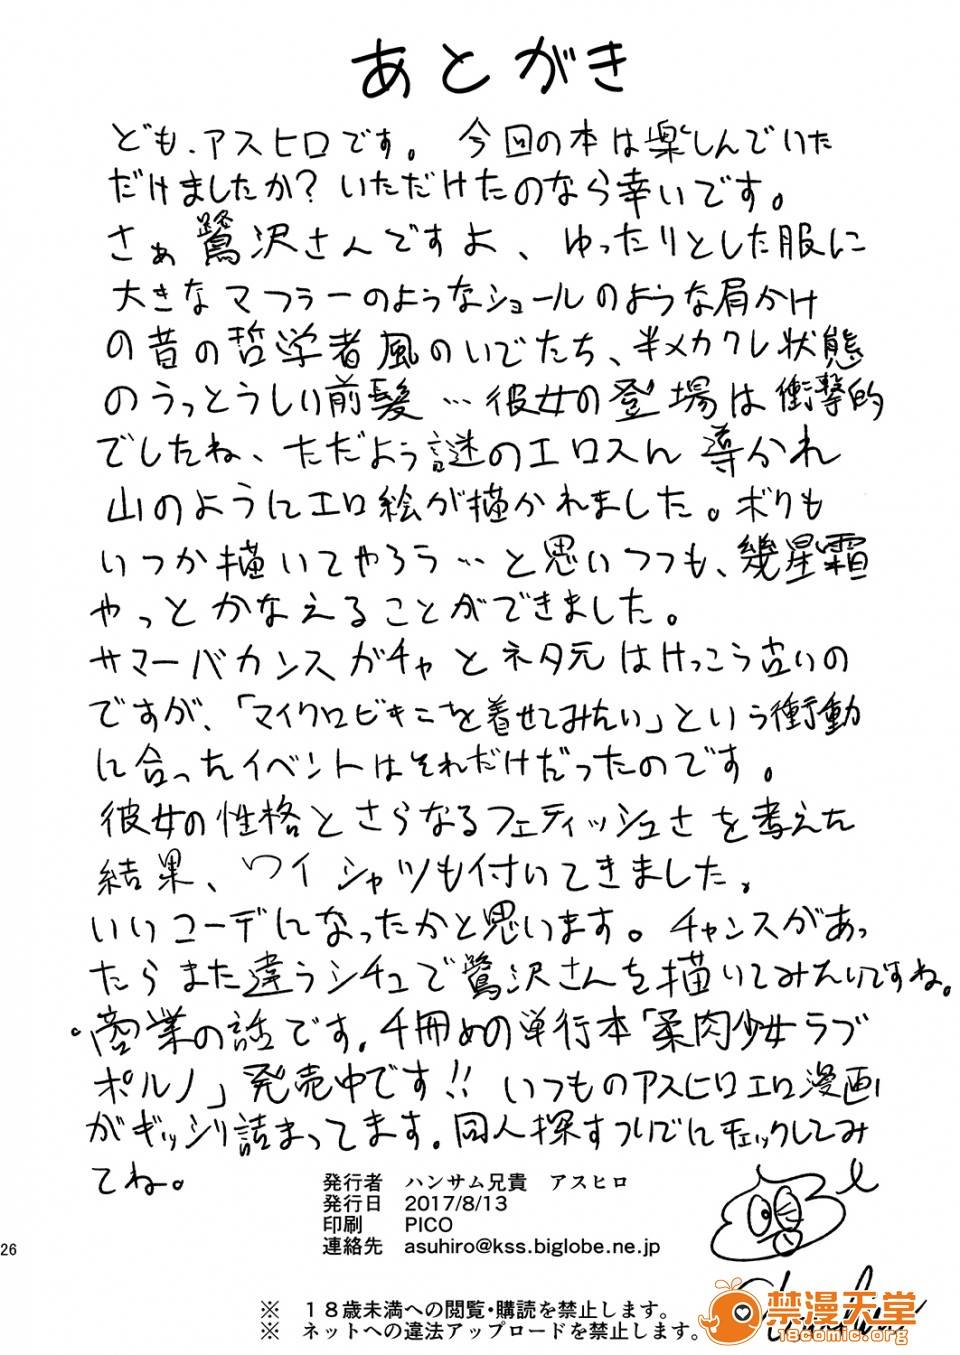 あとがき
ども、アスヒロです。今回の本は楽しんでいた
だけましたか?いただけたのなら幸いです。
さぁ鷺沢さんですよ、ゆったりとした服に
大きなマフラーのようなショールのような肩かけ
の昔の哲学者風のいでたち、半メカクレ状態
のうっとうしい前髪…彼女の登場は衝撃的
でしたね、ただよう謎のエロスん導かれ
山のようにエロ絵が描かれました。ボクも
いつか描いてやろう…と思いつつも、幾星霜
やっとかなえることができました。
サマーバカンスガチャとネタ元はけっこう古いの
ですが、「マイクロビキニを着せてみたい」という衝動
に合ったイベントはそれだけだったのです。
彼女の性格とさらなるフェティッシュさを考えた
結果、ワイシャツも付いてきました。
いいコーデになったかと思います。チャンスがあっ
たらまた違うシチュで鷺沢さんを描いてみたいですね。
・商業の話です。4冊めの単行本「柔肉少女ラブ
ポルノ」発売中です!!いつものアスヒロエロ漫画
がギッシリ詰まってます。同人探すついでにチェックしてみ
てね。
発行者 ハンサム兄貴 アスヒロ
発行日 2017/8/13
印刷 PICO
連絡先 asuhiro@kss.biglobe.ne.jp
26
※ 18歳未満への閲覧・購読を禁止します。
※ ネットへの違法アップロードを禁止します。
禁漫天堂
18comic.org